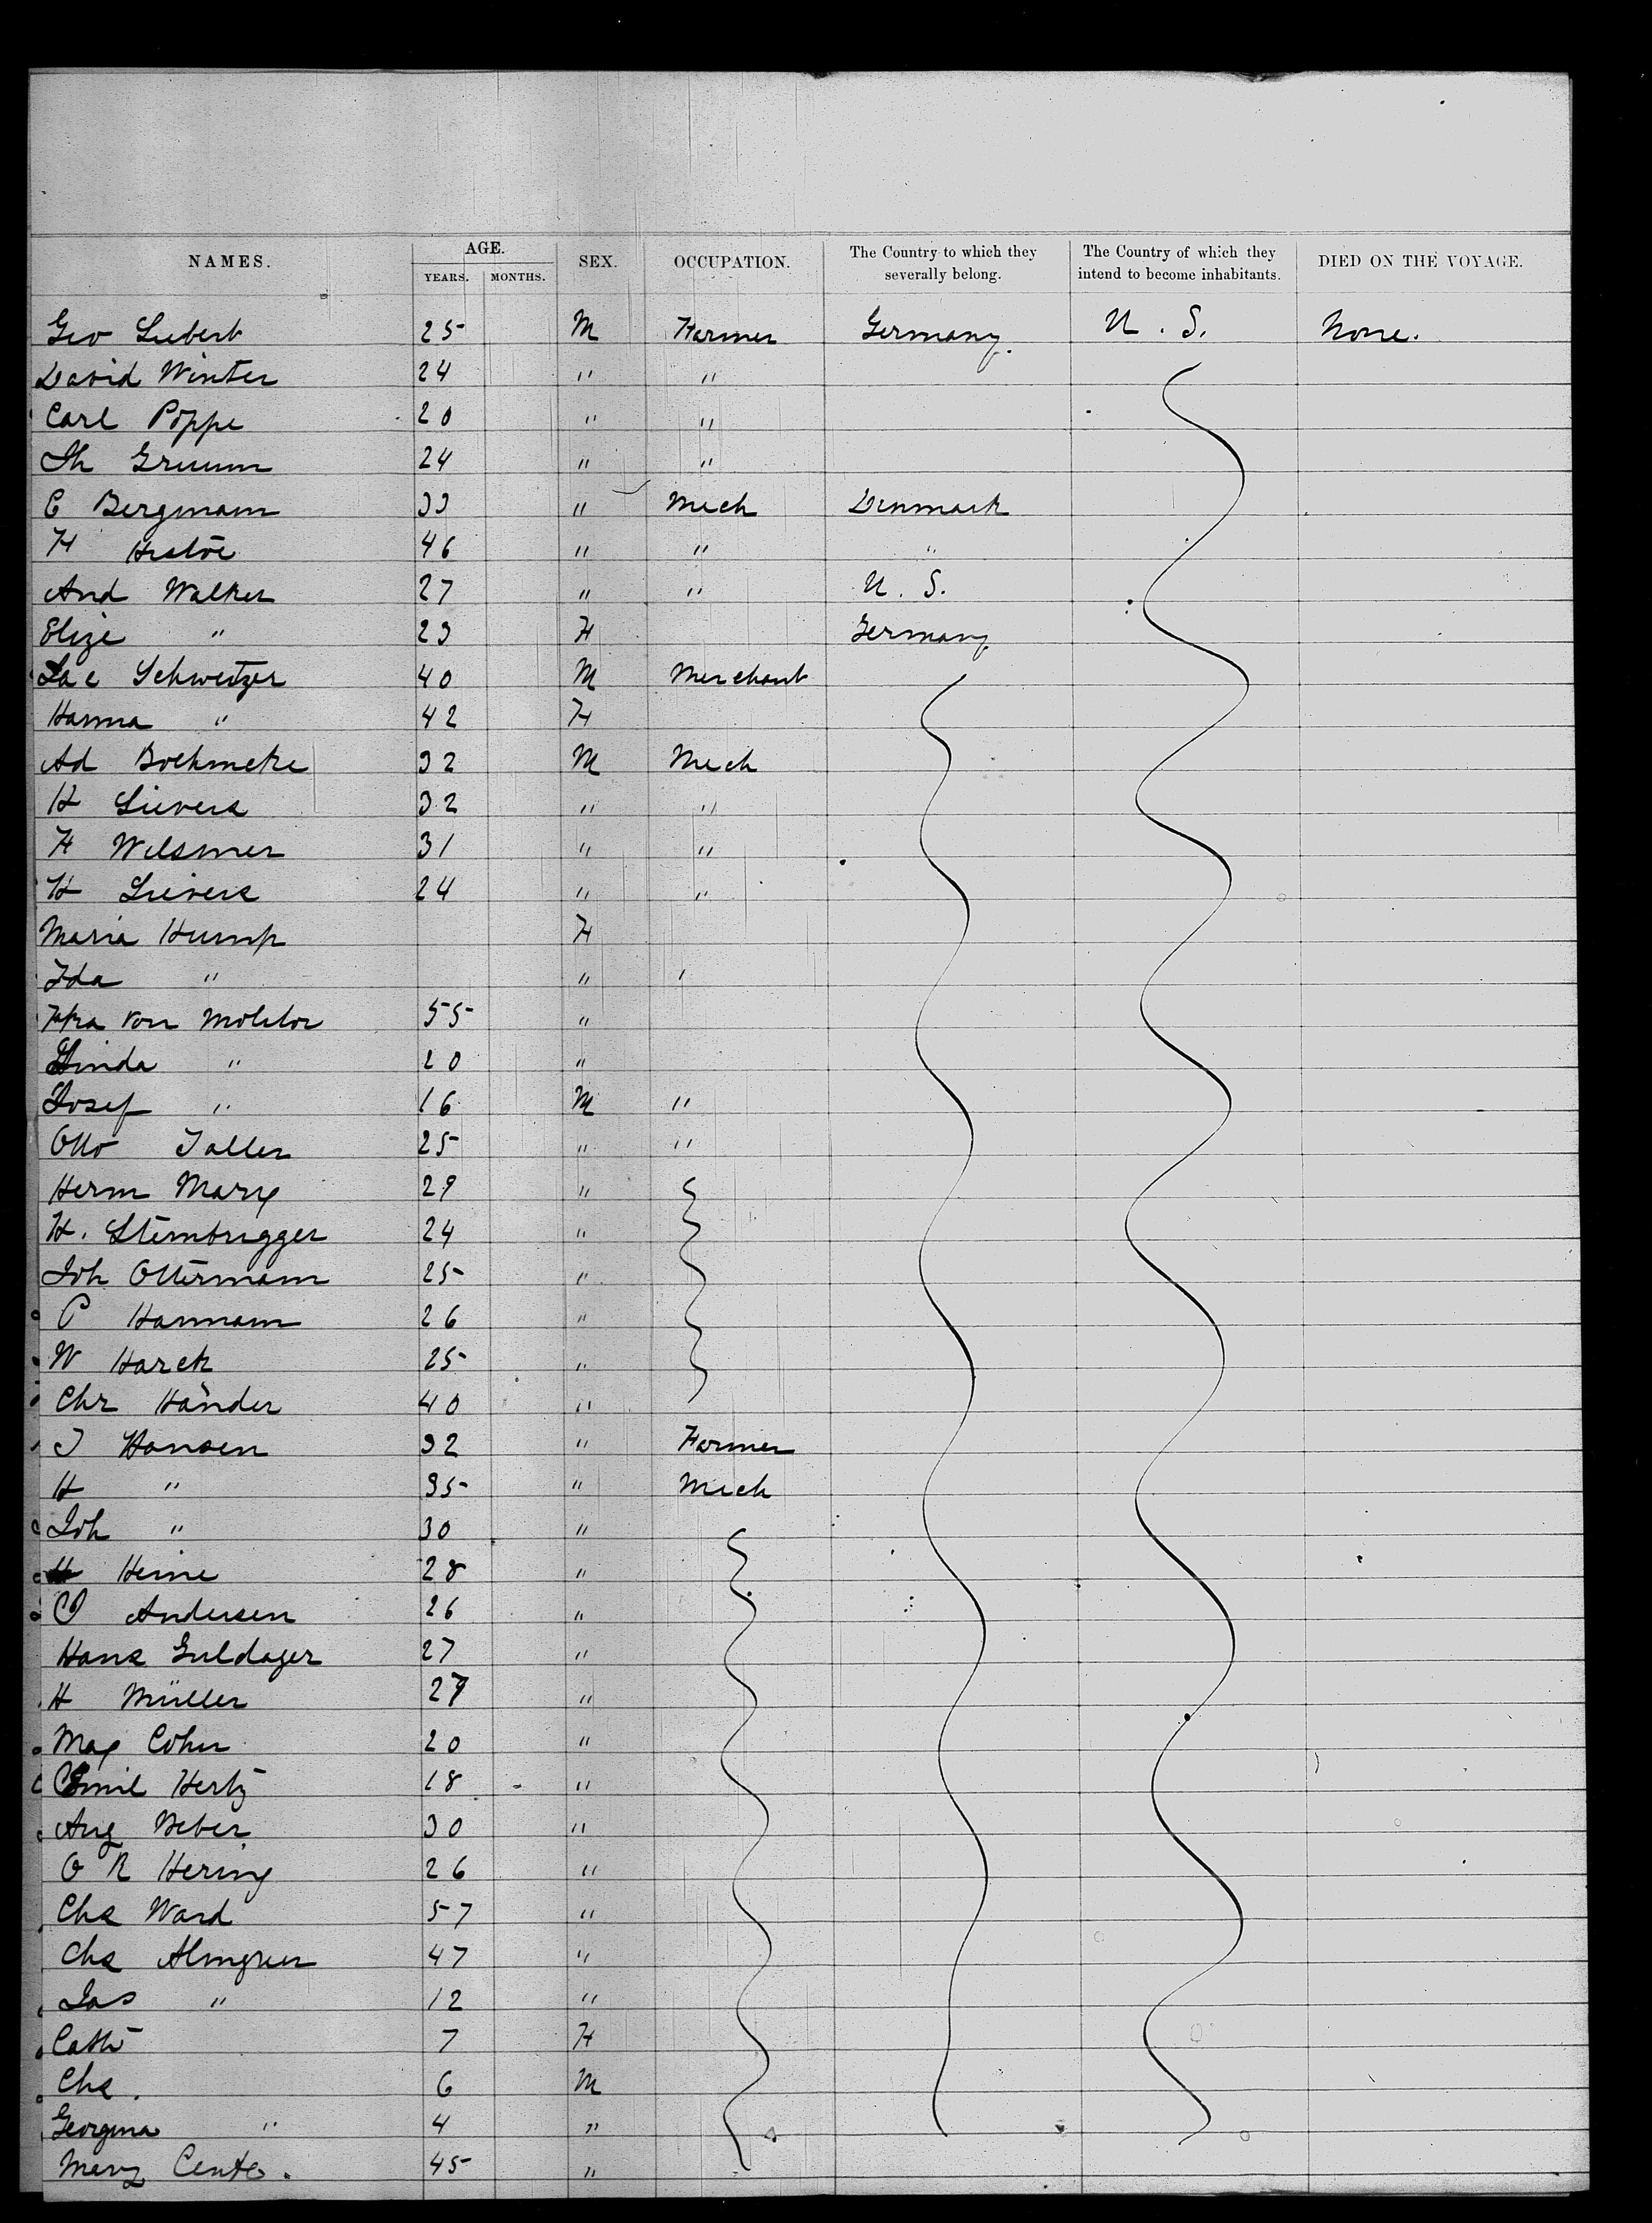 NAMES. AGE. SEX. OCCUPATION. The Country to which they severally belong. The Country of which they intend to become inhabitants. DIED ON THE VOYAGE.
YEARS. MONTHS.
Geo Siebert 25 M Farmer Germany U. S. None.
David Winter 24 " "
Carl Poppe 20 " "
24 " "
C Bergmann 33 " Mech Denmark
H 46 " " "
And Walker 27 " " U. S.
Elize " 23 F Germany
Schweitzer 40 M Merchant
Hanna " 42 F
Ad Boehmeke 32 M Mech
H Sievers 32 " "
F Wilsmer 31 " "
H Sievers 24 " "
Maria Hump F
Ida " " '
von Molitor 55 "
Linda " 20 "
Josef " 16 M "
Otto Taller 25 " "
Herm Marx 29 "
H. Steinbrugger 24 "
Joh Ottermann 25 "
P Hannam 26 "
W Harck 25 "
Chr Hander 40 "
J Hansen 32 " Farmer
H " 35 " Mech
Joh " 30 "
H Heine 28 "
O Andersen 26 "
Hans Guldager 27 "
H Müller 27 "
Max Cohn 20 "
Emil Hertz 18 "
Aug Beber 30 "
O R Hering 26 "
Chs Ward 57 "
Chs Almgren 47 "
Jas " 12 "
Cath 7 F
Chs. 6 M
Georgina " 4 "
Mary 45 "